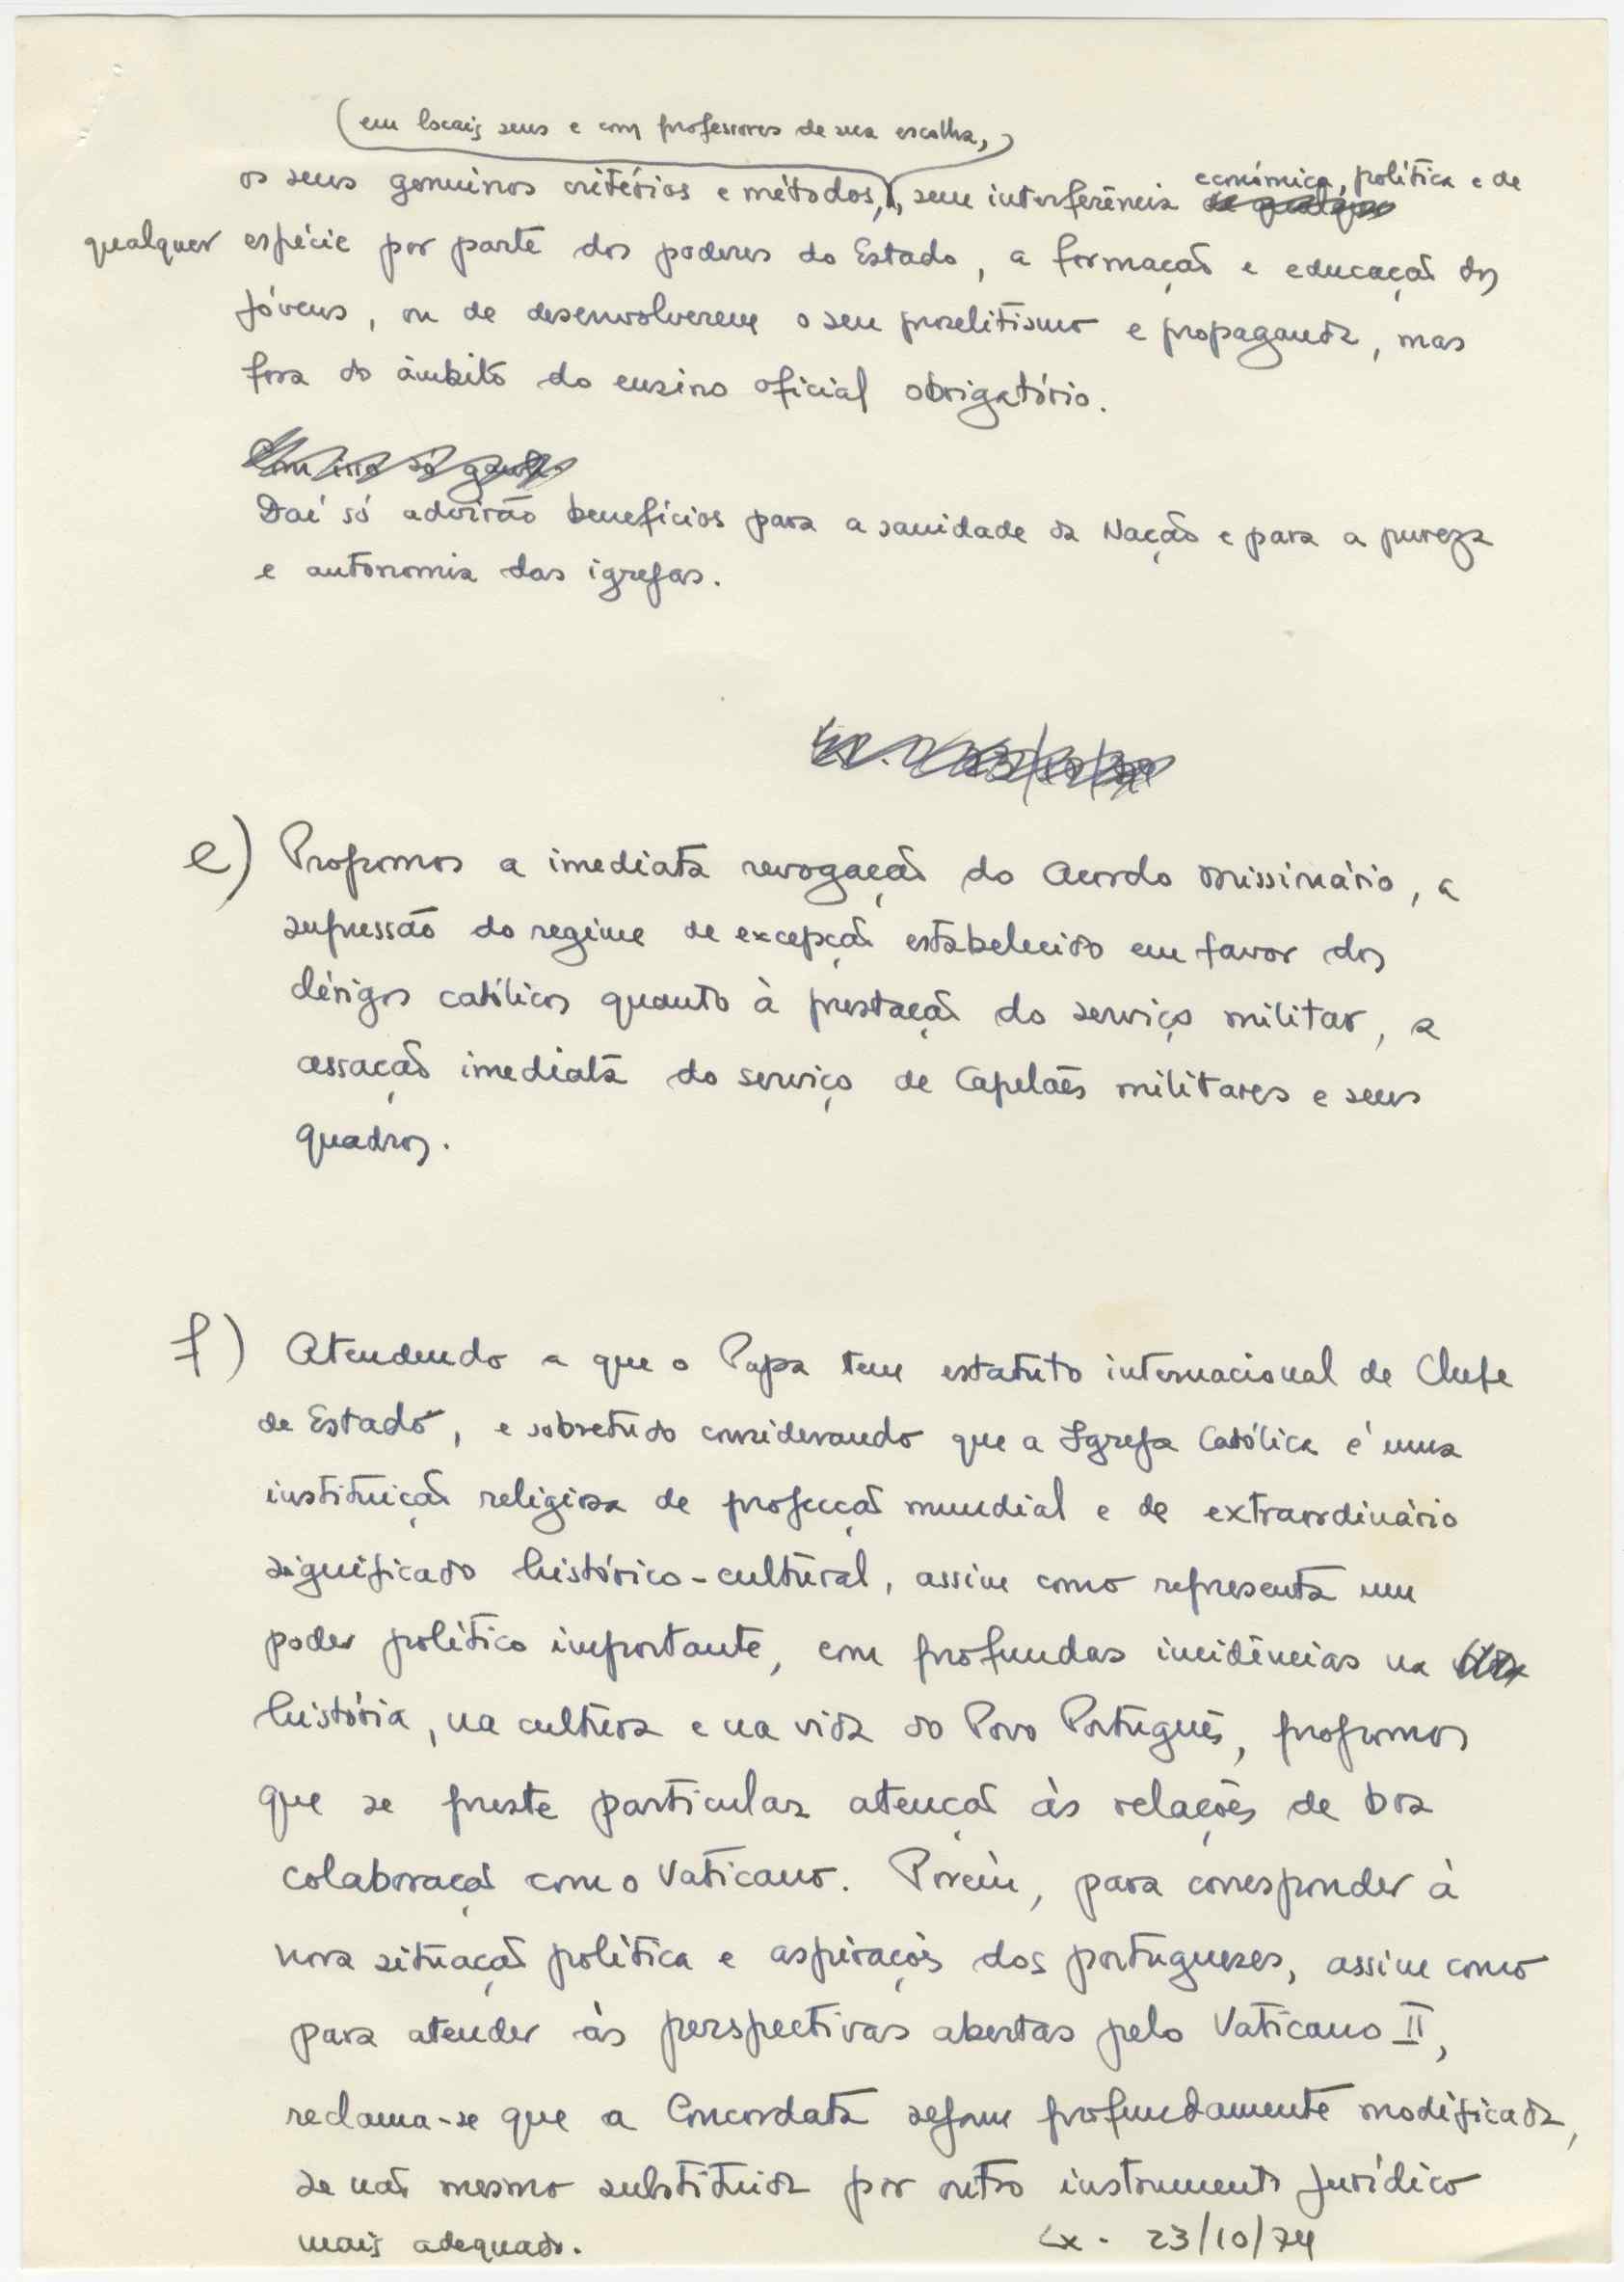 (em locais seus e com professores de sua escolha,)
os seus genuinos critérios e métodos, sem interferência económica, política e de
qualquer espécie por parte dos poderes do Estado, a formação e educação dos
jóvens, ou de desenvolverem o seu proselitismo e propaganda, mas
fora do âmbito do ensino oficial obrigatório.
Com isso só
Daí só advirão benefícios para a sanidade da Nação e para a pureza
e autonomia das igrejas.
e) Propomos a imediata revogação do Acordo Missionário, a
supressão do regime de excepção estabelecido em favor dos
clérigos católicos quanto à prestação do serviço militar, a
cessação imediata do serviço de Capelães militares e seus
quadros.
f) Atendendo a que o Papa tem estatuto internacional de Chefe
de Estado, e sobretudo considerando que a Igreja Católica é uma
instituição religiosa de projecção mundial e de extraordinário
significado histórico-cultural, assim como representa um
poder político importante, com profundas incidências na
história, na cultura e na vida do Povo Português, propomos
que se preste particular atenção às relações de boa
colaboração com o Vaticano. Porém, para corresponder à
nova situação política e aspirações dos portugueses, assim como
para atender às perspectivas abertas pelo Vaticano II,
reclama-se que a Concordata sejam profundamente modificada,
se não mesmo substituida por outro instrumento jurídico
mais adequado.
Lx. 23/10/74